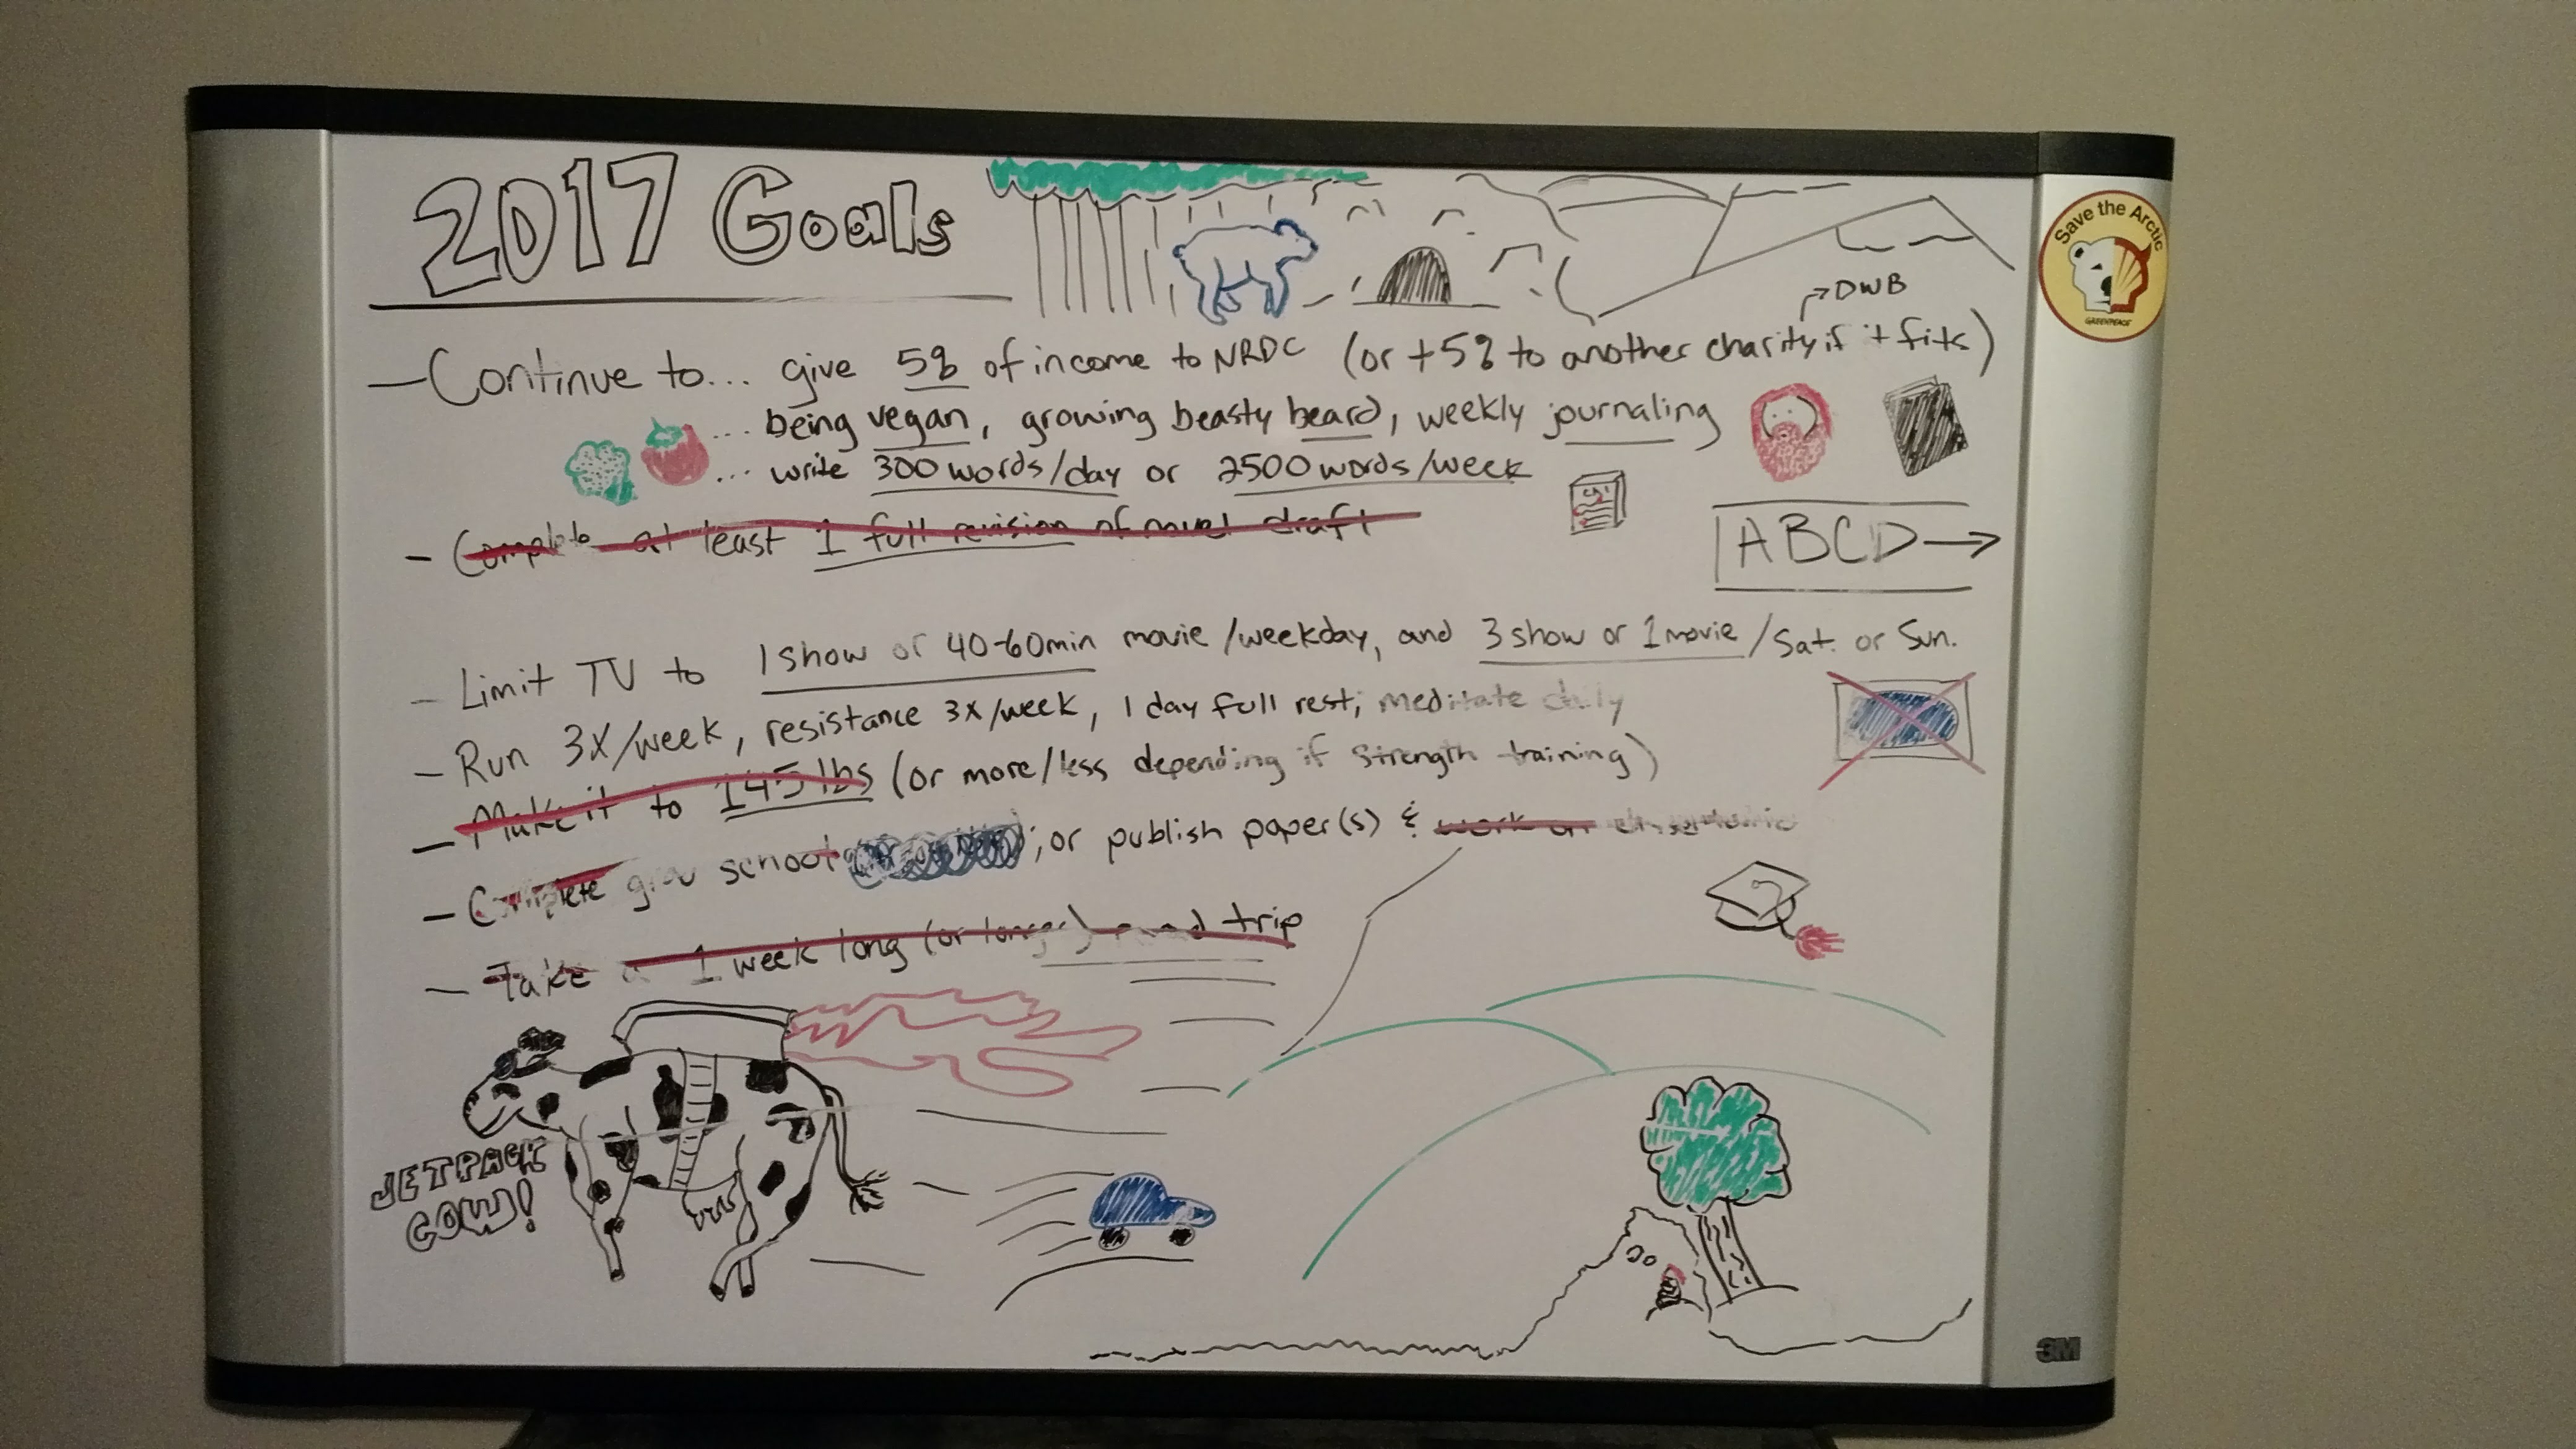 2017 Goals
Save the Arctic
GREENPEACE
→DWB
—Continue to... give 5% of income to NRDC (or +5% to another charity if it fits)
... being vegan, growing beasty beard, weekly journaling
... write 300 words/day or 2500 words/week
Ch 1
- Complete at least 1 full revision of novel draft
ABCD→
- Limit TV to 1 show or 40-60min movie/weekday, and 3 show or 1 movie/Sat. or Sun.
- Run 3X/week, resistance 3X/week, 1 day full rest; meditate daily
- Make it to 145 lbs (or more/less depending if strength training)
- Complete grad school ; or publish paper(s) & work on
- Take a 1 week long (or longer) road trip
JETPACK
COW!
3M